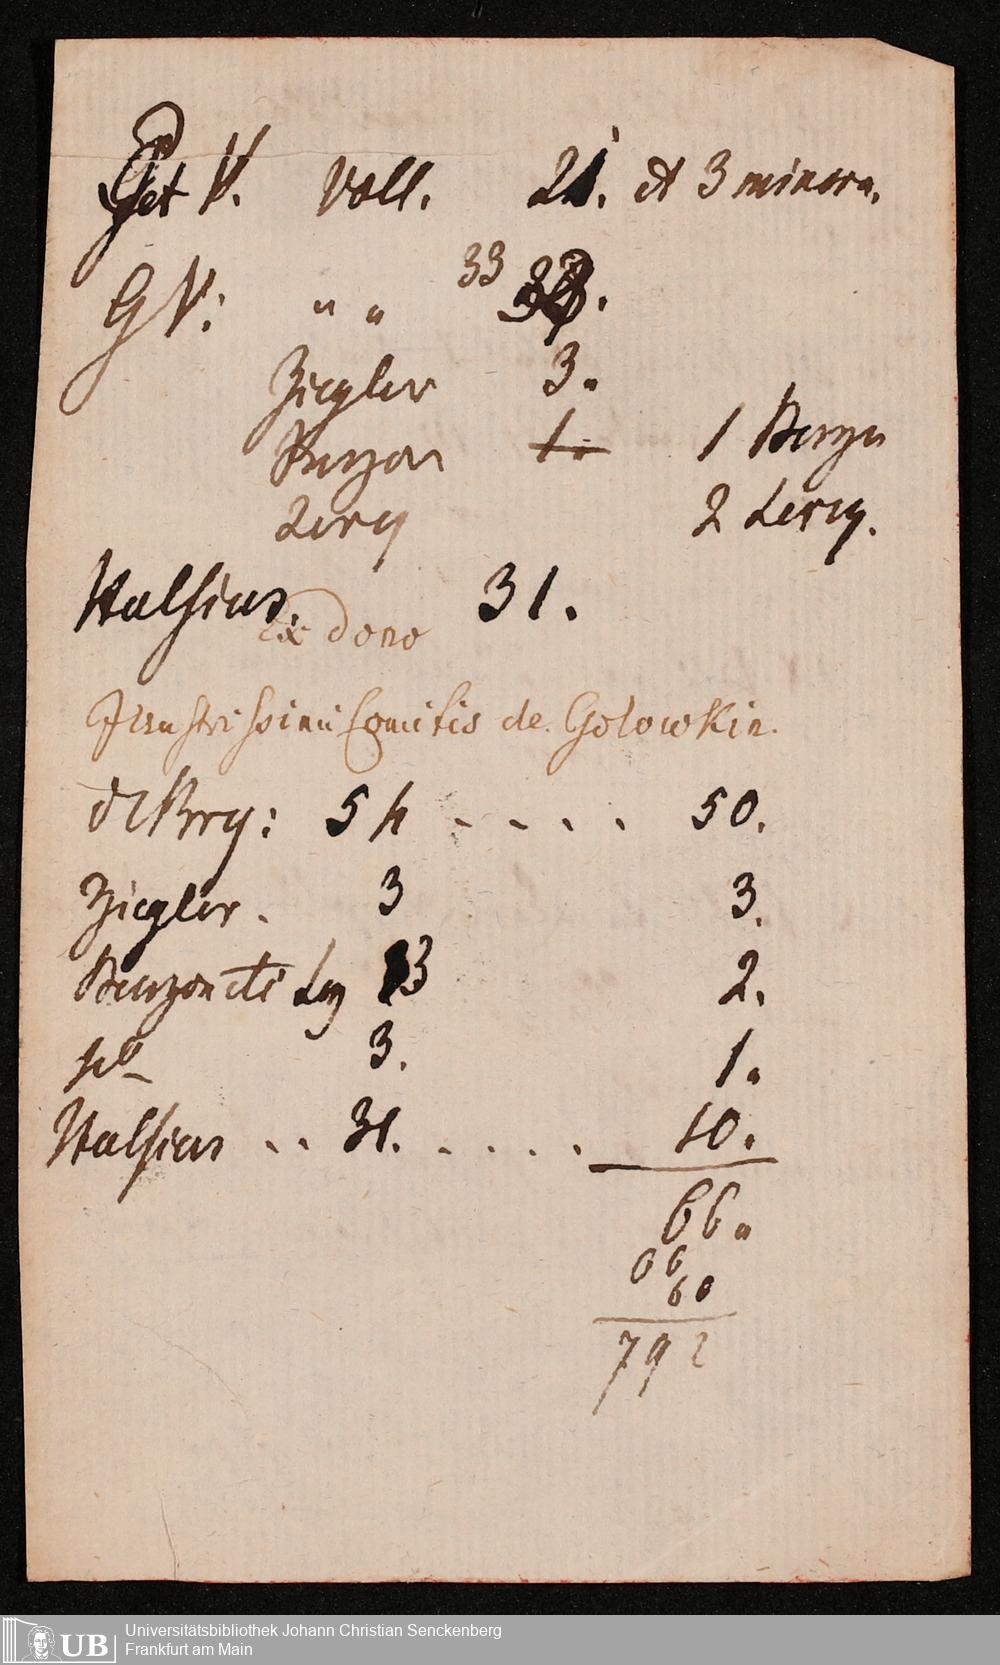 Get V. Voll. 21. et 3 minora.
G V: " " 33
Ziegler 3.
Benzon 1. 1 Benzon
Lercy 2 Lercy.
Halsius. 31.
ex dono
Illustrissimi Comitis de Golowkin.
de Bry: 54 - - - - 50.
Ziegler. 3 3.
Benzon et Ley 3 2.
3. 1.
Halsius .. 31. . . . . 10.
66.
66
60
792
Universitätsbibliothek Johann Christian Senckenberg
Frankfurt am Main
UB